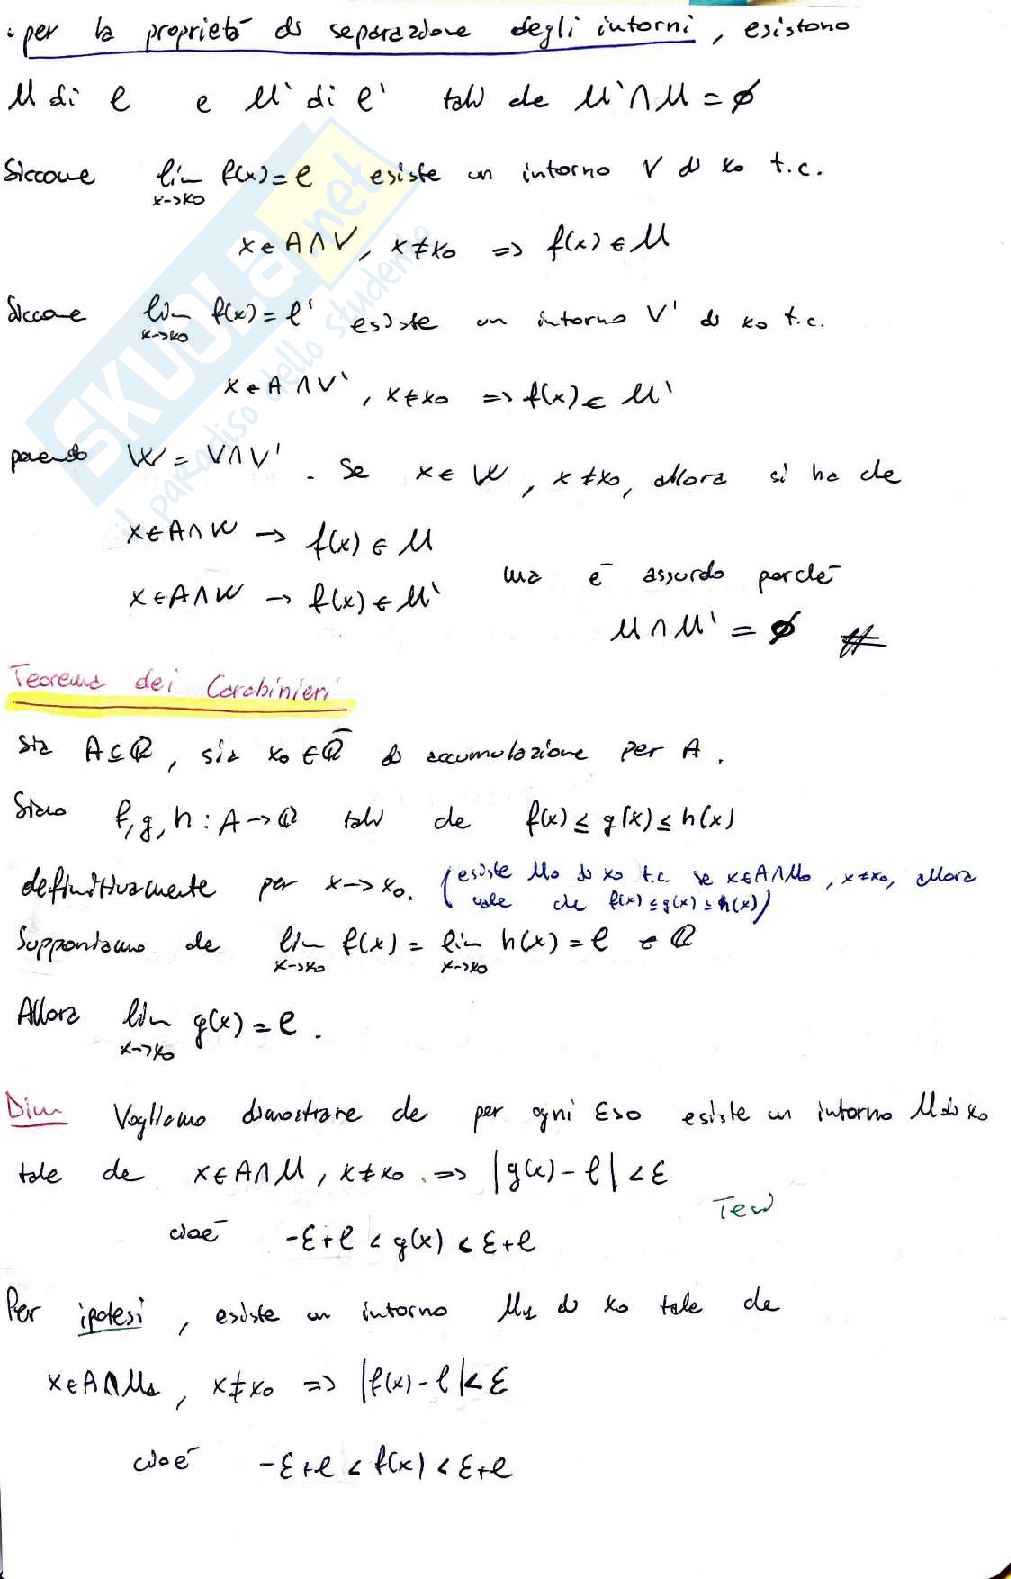 : per la proprietà di separazione degli intorni, esistono
U di l e U' di l' tali che U'∩U = ∅
Siccome lim f(x) = l esiste un intorno V di x0 t.c.
x->x0
x ∈ A∩V, x≠x0 => f(x) ∈ U
Siccome lim f(x) = l' esiste un intorno V' di x0 t.c.
x->x0
x ∈ A∩V', x≠x0 => f(x) ∈ U'
ponendo W = V∩V'. Se x ∈ W, x≠x0, allora si ha che
x ∈ A∩W -> f(x) ∈ U
x ∈ A∩W -> f(x) ∈ U' ma è assurdo perché
U∩U' = ∅ #
Teorema dei Carabinieri
Sia A⊆R, sia x0 ∈ R̄ di accumulazione per A.
Siano f,g,h : A -> R tali che f(x) ≤ g(x) ≤ h(x)
definitivamente per x->x0. (esiste U0 di x0 t.c. se x∈A∩U0, x≠x0, allora
vale che f(x) ≤ g(x) ≤ h(x))
Supponiamo che lim f(x) = lim h(x) = l ∈ R
x->x0 x->x0
Allora lim g(x) = l.
x->x0
Dim Vogliamo dimostrare che per ogni ε>0 esiste un intorno U di x0
tale che x∈A∩U, x≠x0 => |g(x) - l| < ε
Tesi
cioè -ε+l < g(x) < ε+l
Per ipotesi, esiste un intorno U1 di x0 tale che
x∈A∩U1, x≠x0 => |f(x) - l| < ε
cioè -ε+l < f(x) < ε+l
SKUOLA.net
il paradiso dello studente